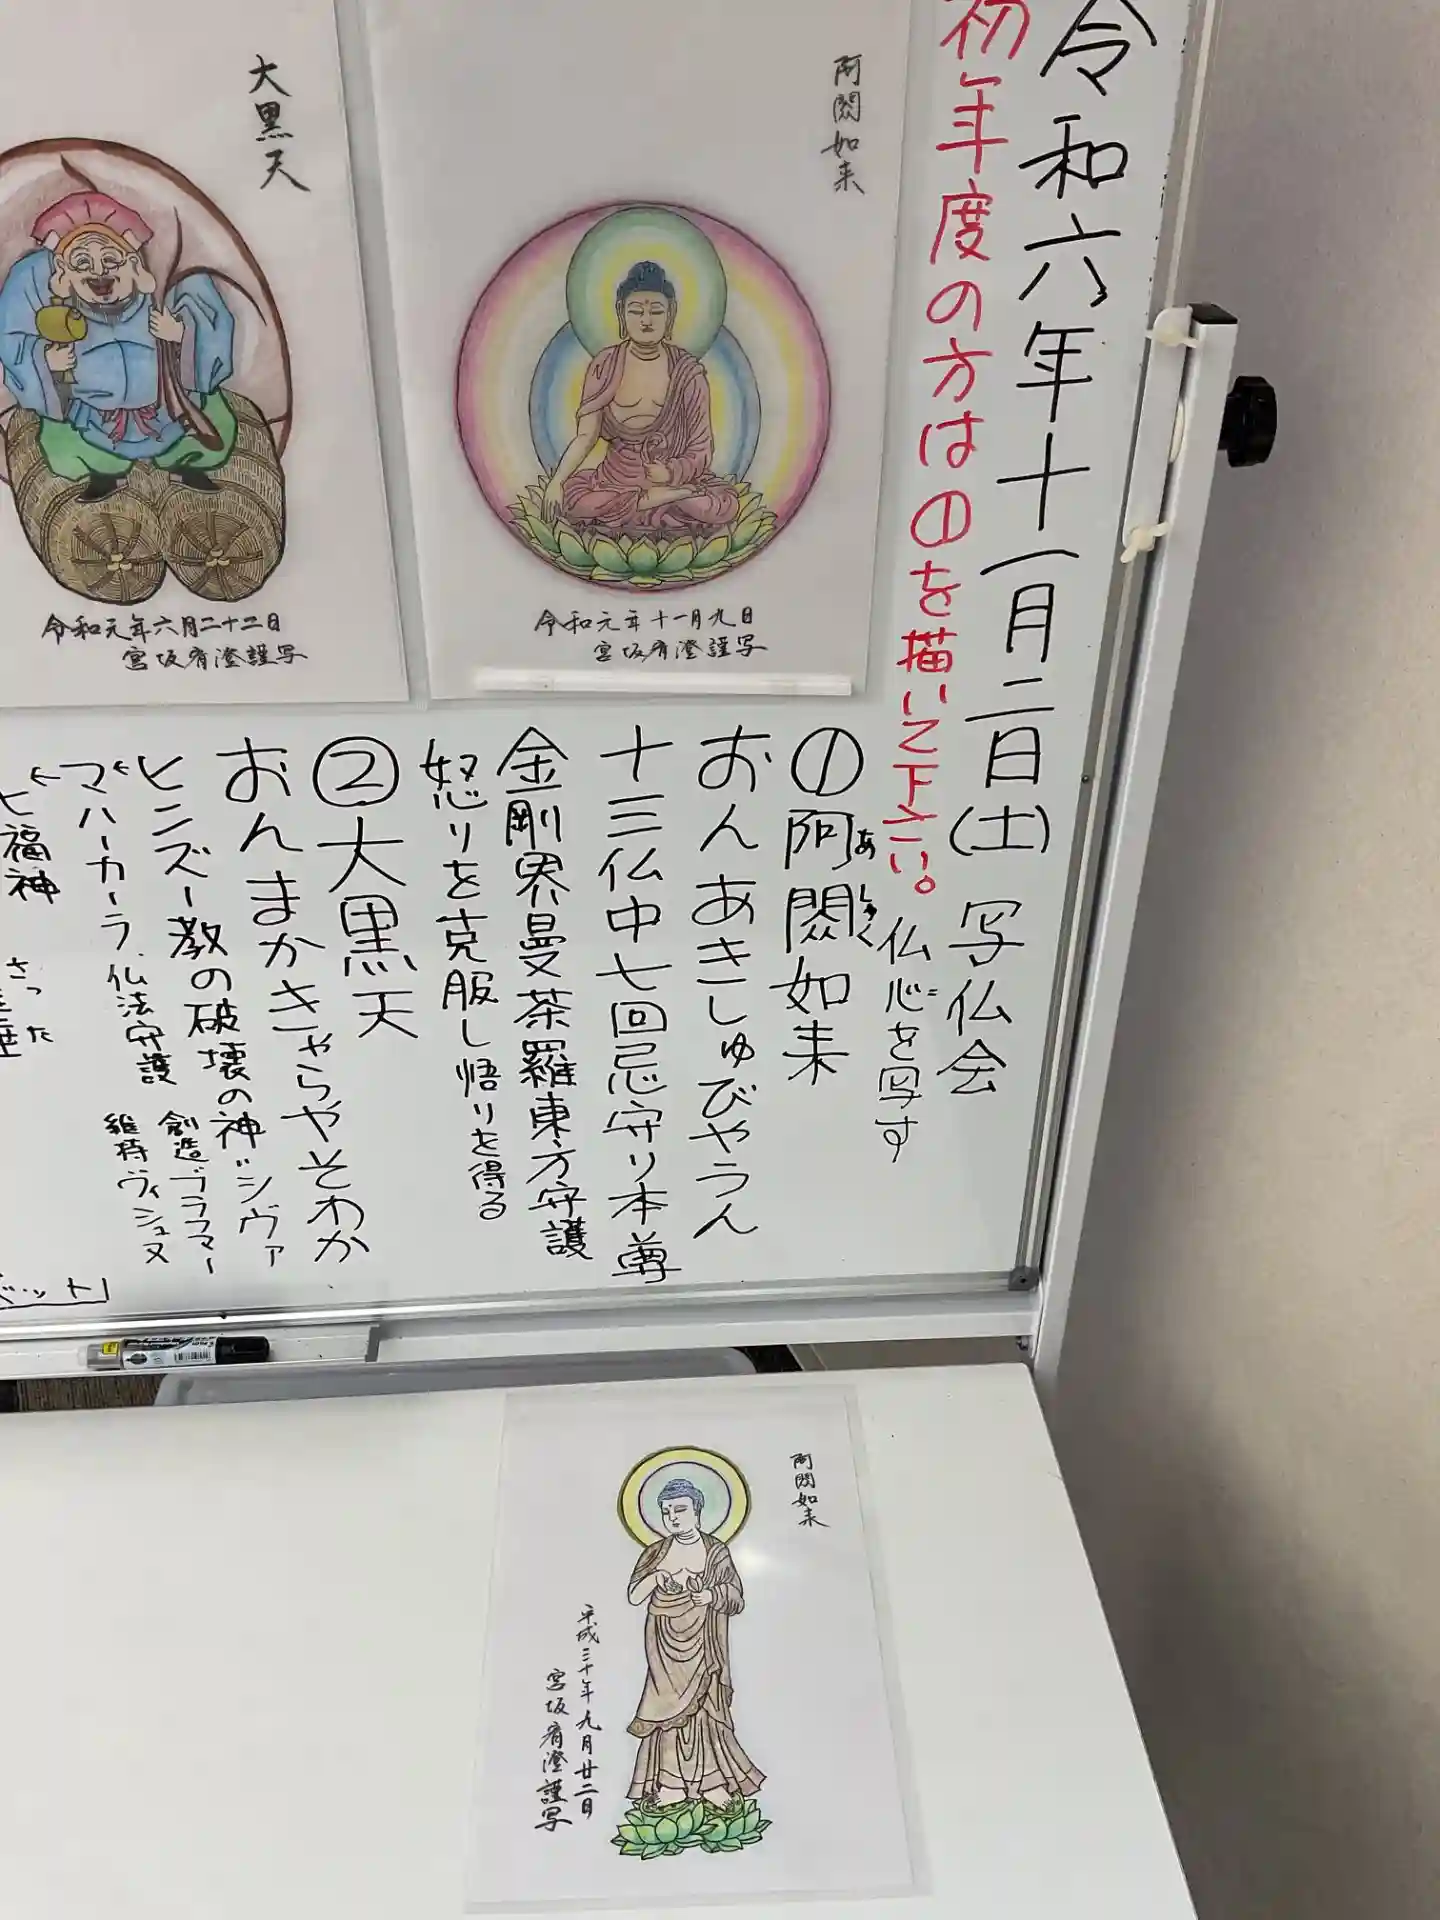 令和六年十一月二日(土) 写仏会
初年度の方は①を描いて下さい。
仏心を写す
①阿閦如来
あ しゅく
おんあきしゅびやうん
十三仏中七回忌守り本尊
金剛界曼茶羅東方守護
怒りを克服し悟りを得る
②大黒天
おんまかきゃらやそわか
ヒンズー教の破壊の神"シヴァ
創造ブラフマー
マハーカーラ、仏法守護
維持ヴィシュヌ
七福神
さった
阿閦如来
令和元年十一月九日
宮坂宥澄謹写
大黒天
令和元年六月二十二日
宮坂宥澄謹写
阿閦如来
平成三十年九月廿二日
宮坂宥澄謹写